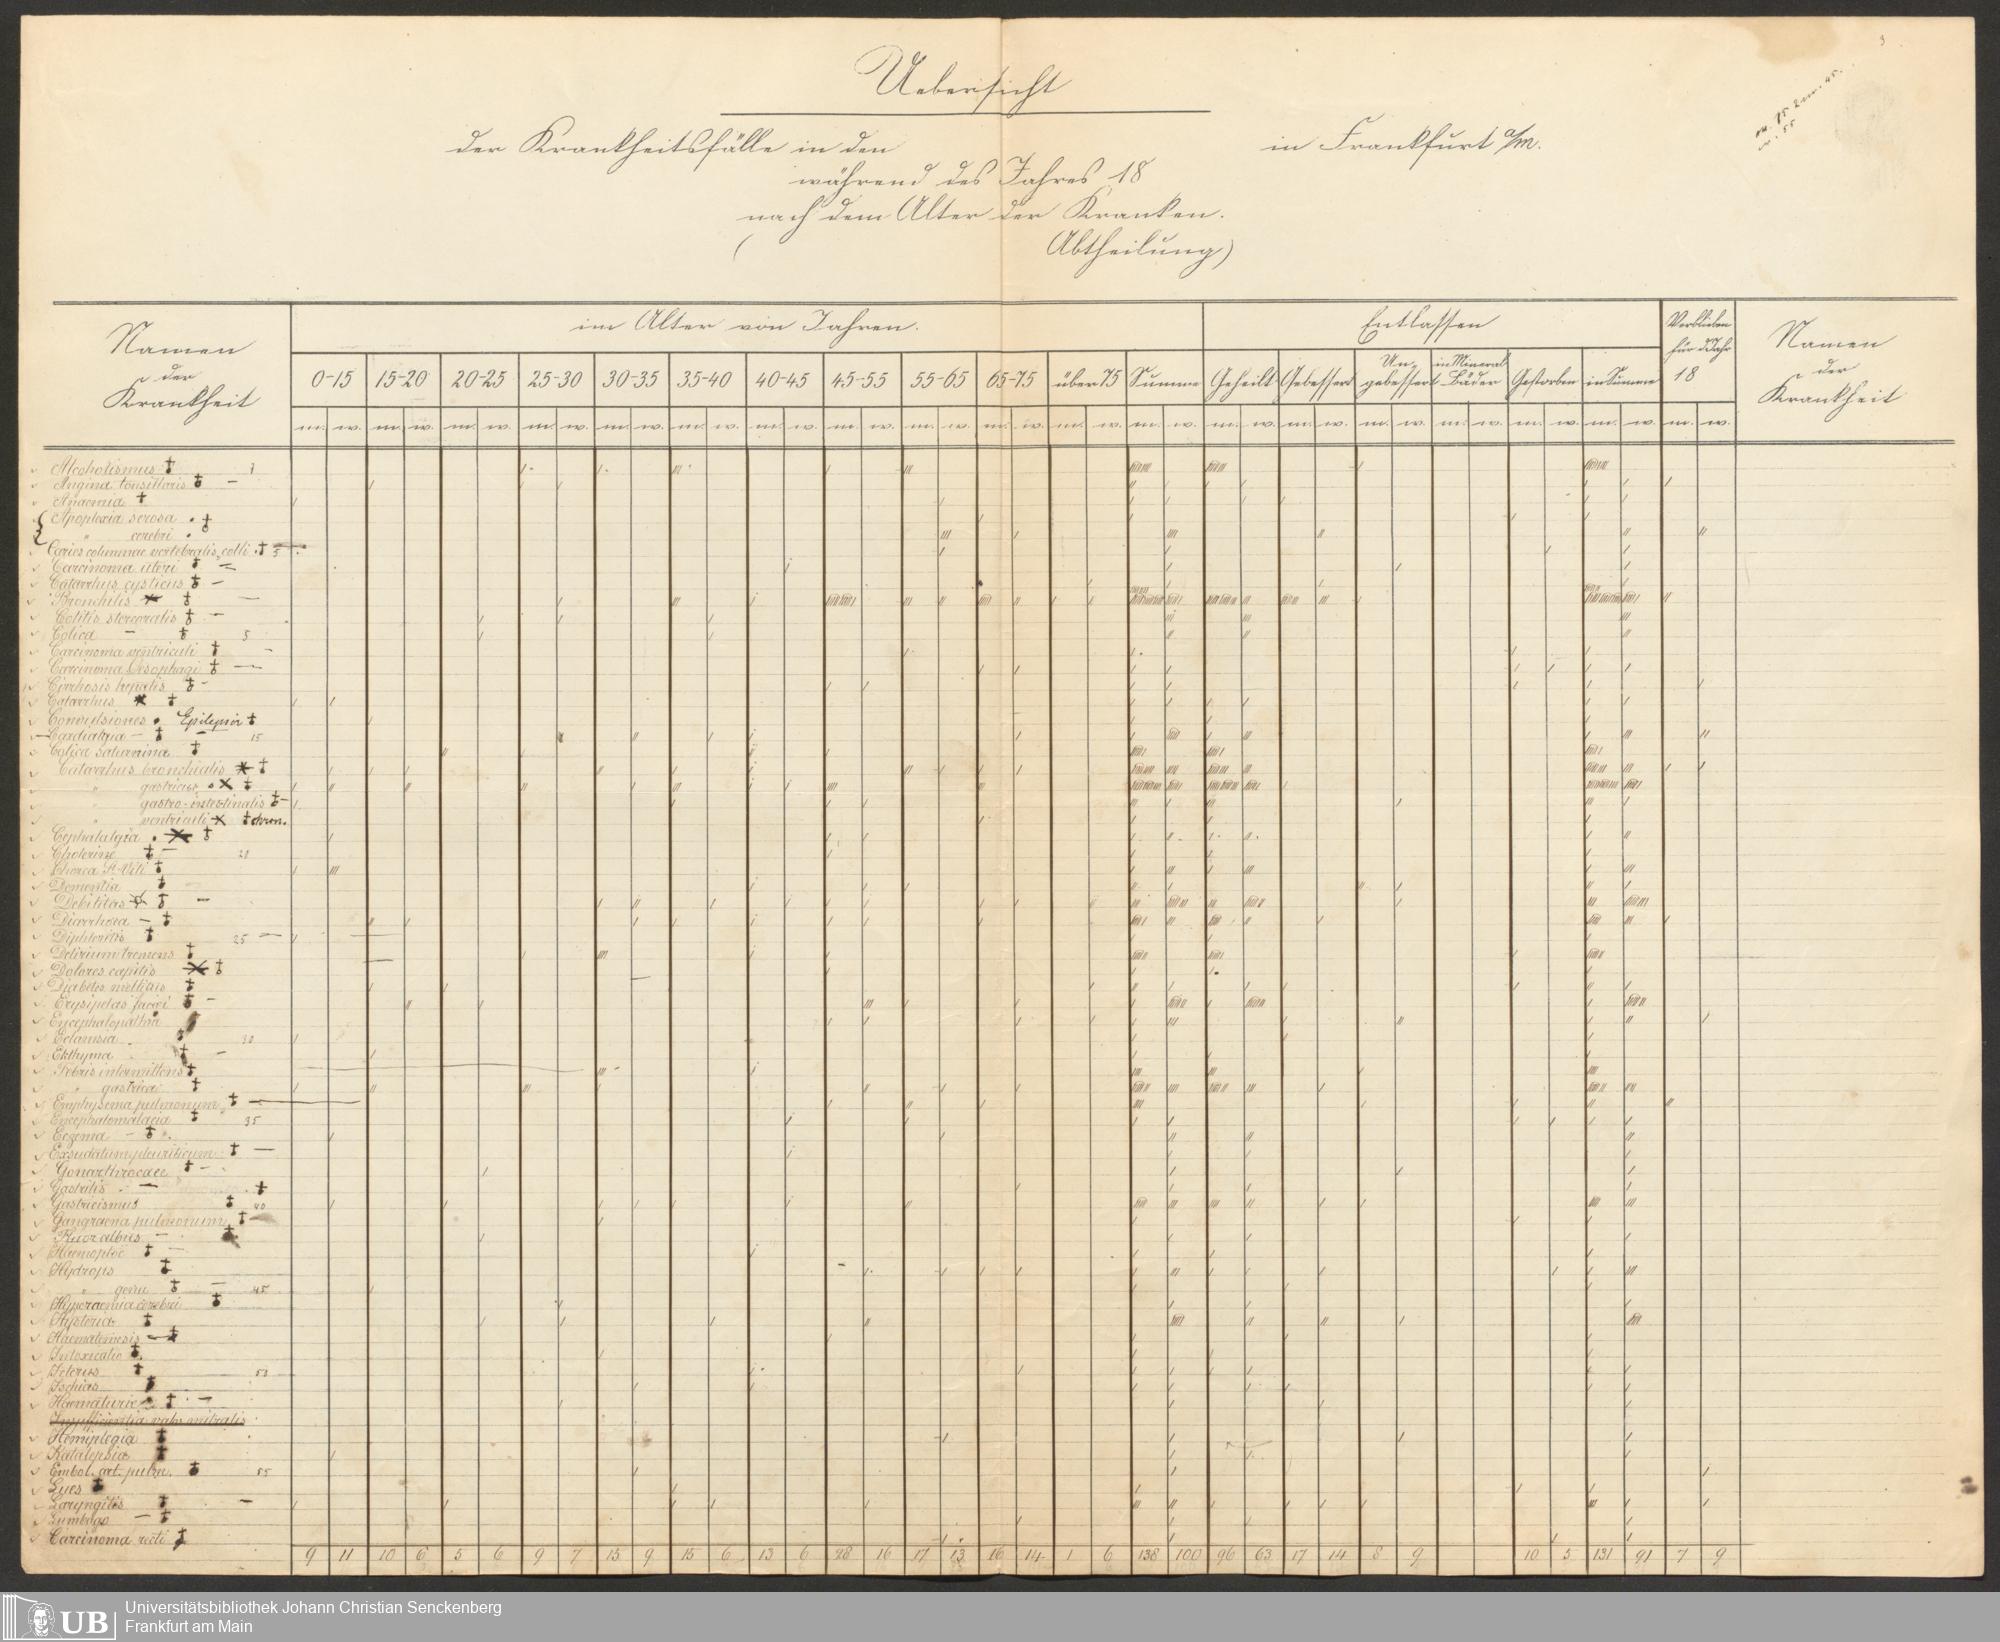 3
Uebersicht
der Krankheitsfälle in den in Frankfurt a/m.
während des Jahres 18
nach dem Alter der Kranken.
( Abtheilung)
Namen der Krankheit
im Alter von Jahren.
Entlassen
Verblieben für d Jahr 18
Namen der Krankheit
0-15 15-20 20-25 25-30 30-35 35-40 40-45 45-55 55-65 65-75 über 75 Summe Geheilt Gebessert Ungebessert in Mineral Bäder Gestorben in Summe
m. w. m. w. m. w. m. w. m. w. m. w. m. w. m. w. m. w. m. w. m. w. m. w. m. w. m. w. m. w. m. w. m. w. m. w. m. w.
Alcoholismus 1
Angina tonsillaris
Anaemia
Apoplexia serosa
" cerebri
Caries columnae vertebralis colli 5
Carcinoma uteri
Catarrhus cysticus
Bronchitis
Colitis stercoralis
Colica 5
Carcinoma ventriculi
Carcinoma Oesophagi
Cirrhosis hepatis
Catarrhus
Convulsiones Epilepsia
Cardialgia 15
Colica saturnina
Catarrhus bronchialis
" gastricus
" gastro-intestinalis
" ventriculi chron.
Cephalalgia
Cholerine 20
Chorea St. Viti
Dementia
Debilitas
Diarrhoea
Diphteritis 25
Delirium tremens
Dolores capitis
Diabetes mellitus
Erysipelas faciei
Encephalopathia
Eclamsia 30
Ekthyma
Febris intermittens
" gastrica
Emphysema pulmonum
Encephalomalacia 35
Eczema
Exsudatum pleuriticum
Gonarthrocace
Gastritis
Gastricismus 40
Gangraena pulmonum
Fluor albus
Haemoptoe
Hydrops
" genu 45
Hyperaemia cerebri
Hysteria
Haematemesis
Intoxicatio
Icterus 50
Ischias
Haematurie
Insufficientia valv. mitralis
Hemiplegia
Katalepsia
Embol. art. pulm. 55
Lues
Laryngitis
Lumbago
Carcinoma recti
9 11 10 6 5 6 9 7 15 9 15 6 13 6 28 16 17 13 16 14 1 6 138 100 96 63 17 14 8 9 10 5 131 91 7 9
UB
Universitätsbibliothek Johann Christian Senckenberg
Frankfurt am Main